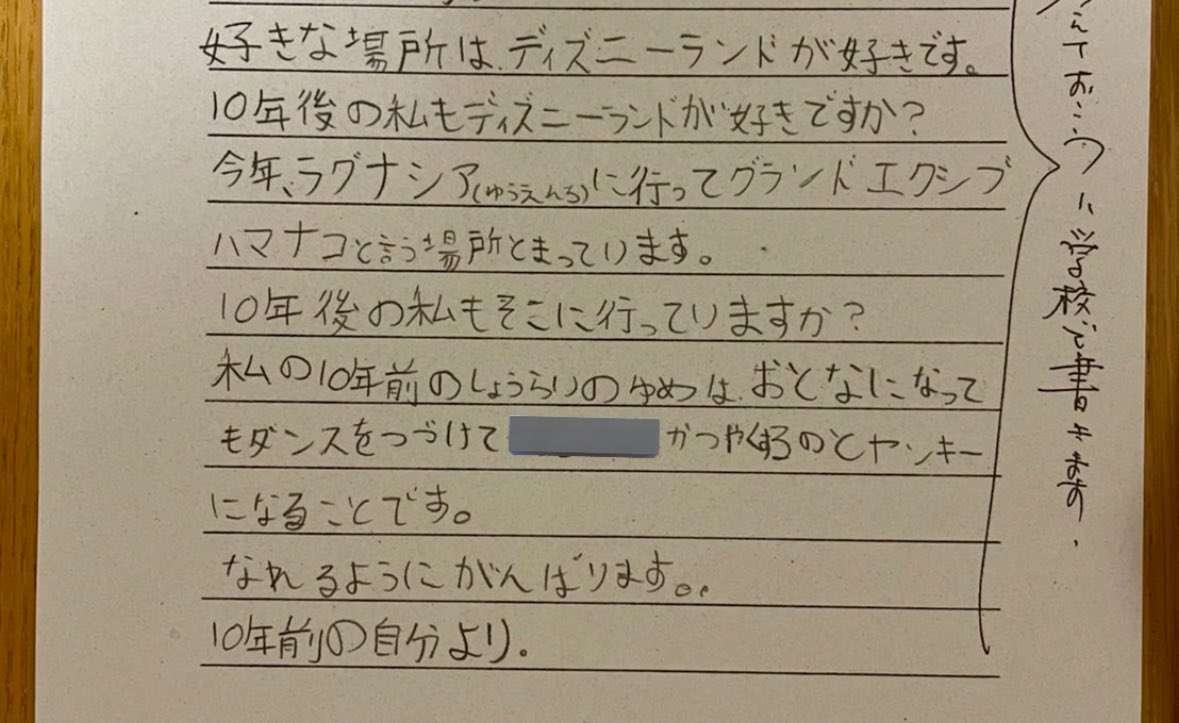 好きな場所は、ディズニーランドが好きです。
10年後の私もディズニーランドが好きですか?
今年、ラグナシア(ゆうえんち)に行ってグランドエクシブ
ハマナコと言う場所とまっています。
10年後の私もそこに行っていますか?
私の10年前のしょうらいのゆめは、おとなになって
もダンスをつづけて かつやくするのとヤンキー
になることです。
なれるようにがんばります。
10年前の自分より.
えておこう
学校で書きます.